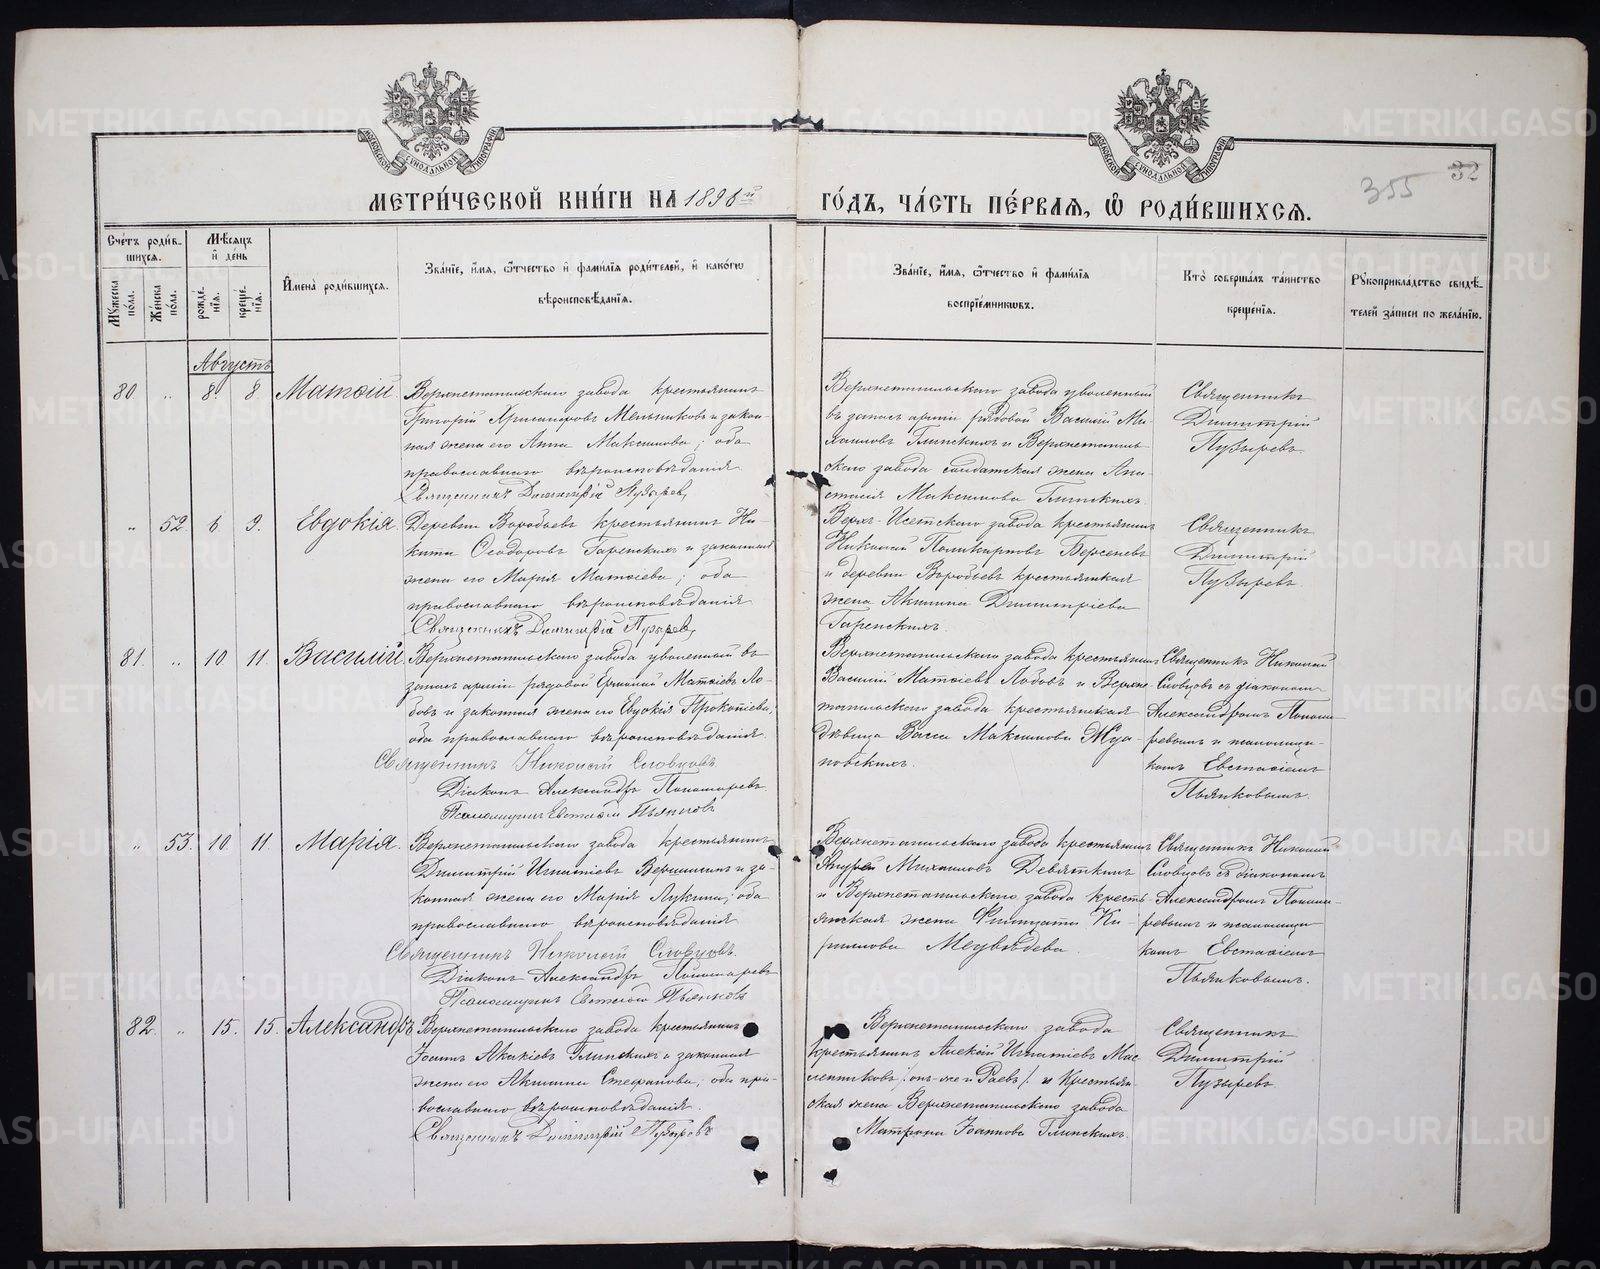 МОСКОВСКОЙ СѴНОДАЛЬНОЙ ТИПОГРАФІИ
МОСКОВСКОЙ СѴНОДАЛЬНОЙ ТИПОГРАФІИ
32
355
МЕТРИ́ЧЕСКОЙ КНИ́ГИ НА 1896й
ГО́ДЪ, ЧА́СТЬ ПЕ́РВАЯ, Ѡ РОДИ́ВШИХСЯ.
Сче́тъ роди́в-
шихся.
Му́жеска по́ла.
Же́нска по́ла.
Мѣ́сяцъ
и́ де́нь
рожде́-
нїя.
креще́-
нїя.
И́мена̀ роди́вшихся.
Зва́нїе, и́мя, ѻ́тчество и́ фами́лїя роди́телей, и́ како́гѡ
вѣроисповѣ́данїя.
Зва́нїе, и́мя, ѻ́тчество и́ фами́лїя
воспрїе́мниковъ.
Кто̀ соверша́лъ та́инство
креще́нїя.
Рꙋкоприкла́дство свидѣ́-
телей за́писи по жела́нїю.
Августъ
80 „ 8. 8 Матѳій
Верхнетагильскаго завода крестьянинъ
Григорій Хрисанфовъ Мельниковъ и закон-
ная жена его Анна Максимова; оба
православнаго вѣроисповѣданія.
Священникъ Димитрій Пузыревъ
Верхнетагильскаго завода уволенный
въ запасъ арміи рядовой Василій Ми-
хаиловъ Глинскихъ и Верхнетагиль-
скаго завода солдатская жена Ана-
стасія Максимова Глинскихъ
Священникъ
Димитрій
Пузыревъ.
„ 52. 6 9. Евдокія
Деревни Воробьевъ крестьянинъ Ни-
кита Ѳеодоровъ Гаренскихъ и законная
жена его Марія Матѳіева; оба
православнаго вѣроисповѣданія
Священникъ Димитрій Пузыревъ
Верхъ-Исетскаго завода крестьянинъ
Николай Поликарповъ Берсеневъ
и деревни Воробьевъ крестьянская
жена Акилина Димитріева
Гаренскихъ.
Священникъ
Димитрій
Пузыревъ
81. „ 10. 11. Василій
Верхнетагильскаго завода уволенный въ
запасъ арміи рядовой Матѳіевъ Ло-
бовъ и законная жена его Евдокія Прокопіева;
оба православнаго вѣроисповѣданія
Священникъ Николай Словцовъ
Діаконъ Александръ Пономаревъ.
Псаломщикъ Евстафій Пьянковъ
Верхнетагильскаго завода крестьянинъ
Василій Матѳіевъ Лобовъ и Верхне-
тагильскаго завода крестьянская
дѣвица Васса Максимова Жда-
новскихъ.
Священникъ Николай
Словцовъ съ діакономъ
Александромъ Понома-
ревымъ и псаломщи-
комъ Евстафіемъ
Пьянковымъ.
„ 53. 10. 11. Марія.
Верхнетагильскаго завода крестьянинъ
Димитрій Игнатіевъ Вершининъ и за-
конная жена его Марія Лукина; оба
православнаго вѣроисповѣданія
Священникъ Николай Словцовъ.
Діаконъ Александръ Пономаревъ
Псаломщикъ Евстафій Пьянковъ
Верхнетагильскаго завода крестьянинъ
Андрей Михаиловъ Девяткинъ
и Верхнетагильскаго завода кресть-
янская жена Ки-
риллова Медвѣдева.
Священникъ Николай
Словцовъ съ діакономъ
Александромъ Понома-
ревымъ и псаломщи-
комъ Евстафіемъ
Пьянковымъ.
82. „ 15. 15. Александръ
Верхнетагильскаго завода крестьянинъ
Іоаннъ Акакіевъ Глинскихъ и законная
жена его Акилина Стефанова; оба пра-
вославнаго вѣроисповѣданія.
Священникъ Димитрій Пузыревъ
Верхнетагильскаго завода
крестьянинъ Алексій Игнатіевъ Мас-
ленниковъ /онъ-же и Раевъ/ и крестьян-
ская жена Верхнетагильскаго завода
Матрона Іоаннова Глинскихъ.
Священникъ
Димитрій
Пузыревъ
METRIKI.GASO-URAL.RU